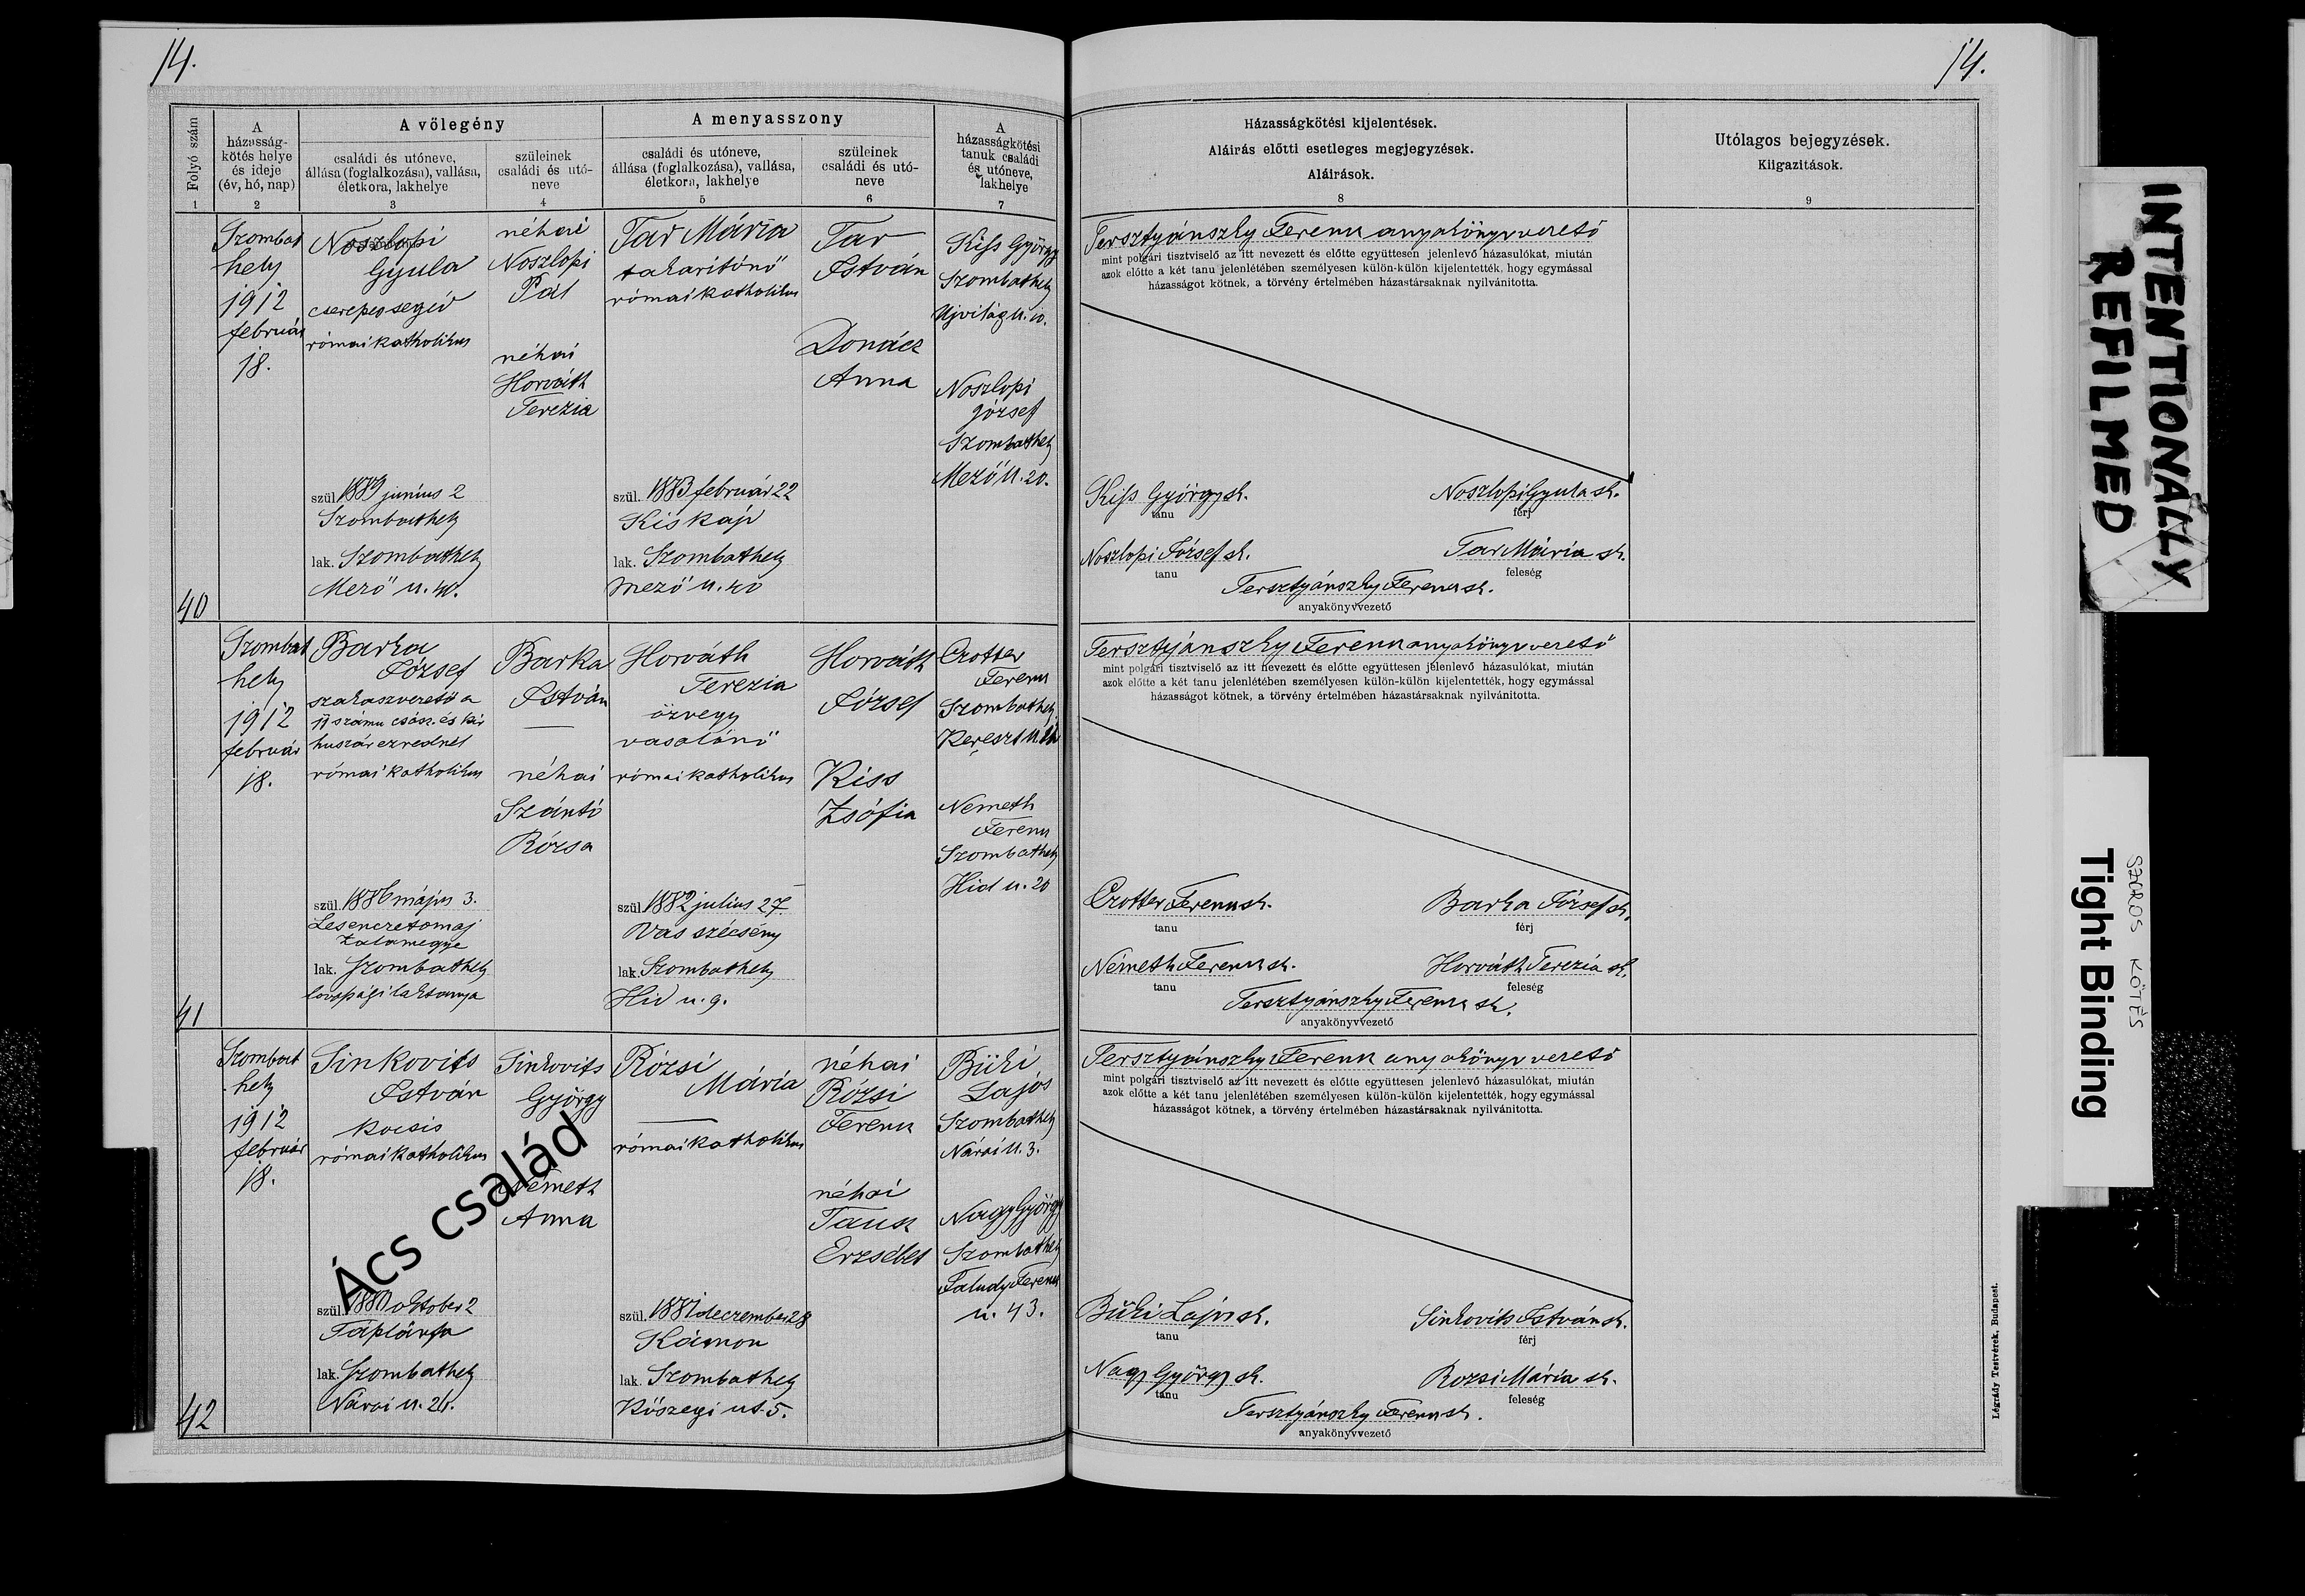 14.
14.
Folyó szám
A házasság-
kötés helye
és ideje
(év, hó, nap)
A vőlegény
családi és utóneve,
állása (foglalkozása), vallása,
életkora, lakhelye
szüleinek
családi és utó-
neve
A menyasszony
családi és utóneve,
állása (foglalkozása), vallása,
életkora, lakhelye
szüleinek
családi és utó-
neve
A
házasságkötési
tanuk családi
és utóneve,
lakhelye
Házasságkötési kijelentések.
Aláirás előtti esetleges megjegyzések.
Aláirások.
Utólagos bejegyzések.
Kiigazitások.
1 2 3 4 5 6 7 8 9
40
Szombat
hely
1912
február
18.
Noszlopi
Gyula
cserepessegéd
római katholikus
szül. 1889 junius 2
Szombathely
lak. Szombathely
Mező u. 40.
néhai
Noszlopi
Pál
néhai
Horváth
Terezia
Tar Mária
takaritónő
római katholikus
szül. 1883 február 22
Kiskáp
lak. Szombathely
mező u. 40
Tar
István
Donácz
Anna
Kiss György
Szombathely
Ujvilág u. 10.
Noszlopi
József
Szombathely
Mező u. 20.
Tersztyánszky Ferencz anyakönyvvezető
mint polgári tisztviselő az itt nevezett és előtte együttesen jelenlevő házasulókat, miután
azok előtte a két tanu jelenlétében személyesen külön-külön kijelentették, hogy egymással
házasságot kötnek, a törvény értelmében házastársaknak nyilvánitotta.
Kiss György sk.
tanu
Noszlopi Gyula sk.
férj
Noszlopi József sk.
tanu
Tar Mária sk.
feleség
Tersztyánszky Ferencz sk.
anyakönyvvezető
41
Szombat
hely
1912
február
18.
Barka
József
szakaszvezető a
11 számu csász. és kir
huszárezrednél
római katholikus
szül. 1886 május 3.
Lesenczetomaj
Zalamegye
lak. Szombathely
lovassági laktanya
Barka
István
néhai
Szántó
Rózsa
Horváth
Terezia
özvegy
vasalónő
római katholikus
szül. 1882 julius 27.
Vasszécsény
lak. Szombathely
Hid u. 9.
Horváth
József
Kiss
Zsófia
Crotter
Ferencz
Szombathely
Kereszt u.
Nemeth
Ferencz
Szombathely
Hid u. 20
Tersztyánszky Ferencz anyakönyvvezető
mint polgári tisztviselő az itt nevezett és előtte együttesen jelenlevő házasulókat, miután
azok előtte a két tanu jelenlétében személyesen külön-külön kijelentették, hogy egymással
házasságot kötnek, a törvény értelmében házastársaknak nyilvánitotta.
Crotter Ferencz sk.
tanu
Barka József sk.
férj
Németh Ferencz sk.
tanu
Horváth Terezia sk.
feleség
Tersztyánszky Ferencz sk.
anyakönyvvezető
42
Szombat
hely
1912
február
18.
Sinkovits
István
kocsis
római katholikus
szül. 1880 oktober 2
Táplánfa
lak. Szombathely
Nárai u. 26.
Sinkovits
György
Németh
Anna
Rózsi
Mária
római katholikus
szül. 1881 deczember 28
Kámon
lak. Szombathely
Kőszegi ut. 5.
néhai
Rózsi
Ferencz
néhai
Tausz
Erzsébet
Büki
Lajos
Szombathely
Nárai u. 3.
Nagy György
Szombathely
Faludy Ferencz
u. 43.
Tersztyánszky Ferencz anyakönyvvezető
mint polgári tisztviselő az itt nevezett és előtte együttesen jelenlevő házasulókat, miután
azok előtte a két tanu jelenlétében személyesen külön-külön kijelentették, hogy egymással
házasságot kötnek, a törvény értelmében házastársaknak nyilvánitotta.
Büki Lajos sk.
tanu
Sinkovits István sk.
férj
Nagy György sk.
tanu
Rozsi Mária sk.
feleség
Tersztyánszky Ferencz sk.
anyakönyvvezető
Ács család
Légrády Testvérek, Budapest.
INTENTIONALLY
REFILMED
SZOROS KÖTÉS
Tight Binding